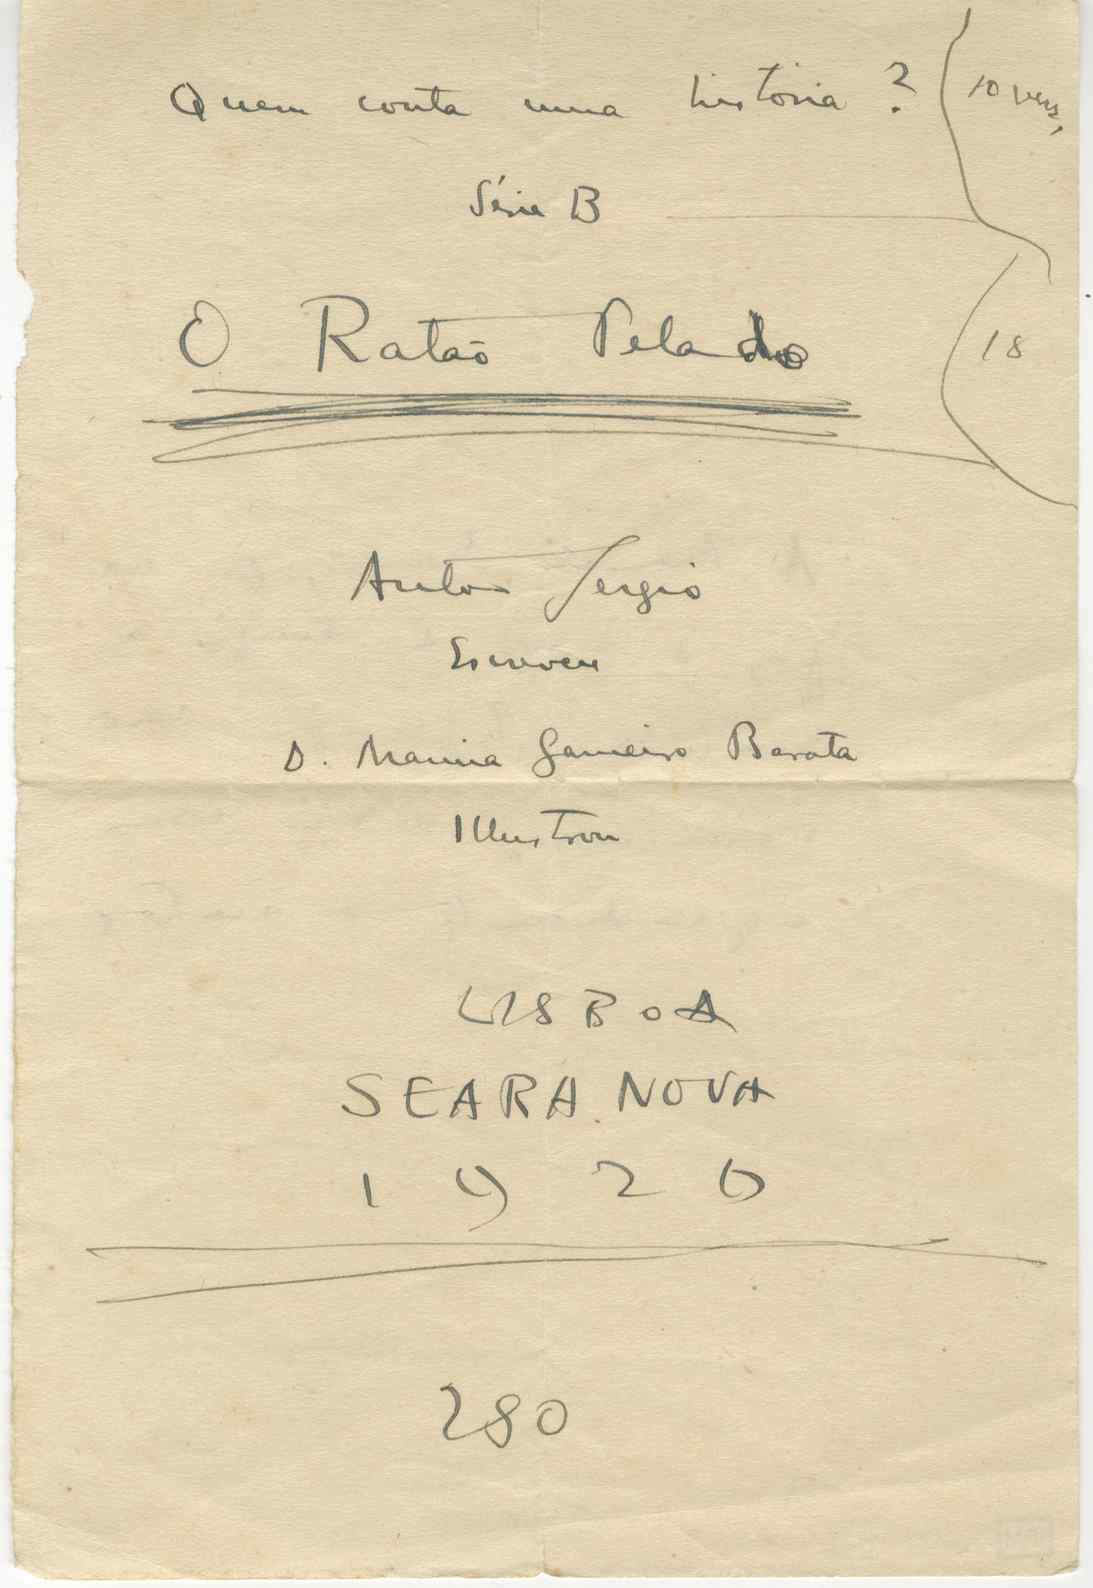 Quem conta uma história ? 10 vers,
Série B
O Ratão Pelado
18
Anto Sergio
Escreveu
D. Mamia Gameiro Barata
Illustrou
LISBOA
SEARA NOVA
1926
280